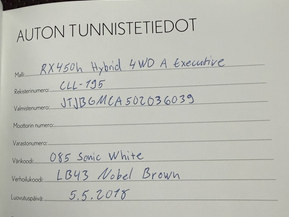 AUTON TUNNISTETIEDOT
Malli: RX450h Hybrid 4WD A Executive
Rekisterinumero: CLL-195
Valmistenumero: JTJBGMCA502036039
Moottorin numero:
Varastonumero:
Värikoodi: 085 Sonic White
Verhoilukoodi: LB43 Nobel Brown
Luovutuspäivä: 5.5.2018